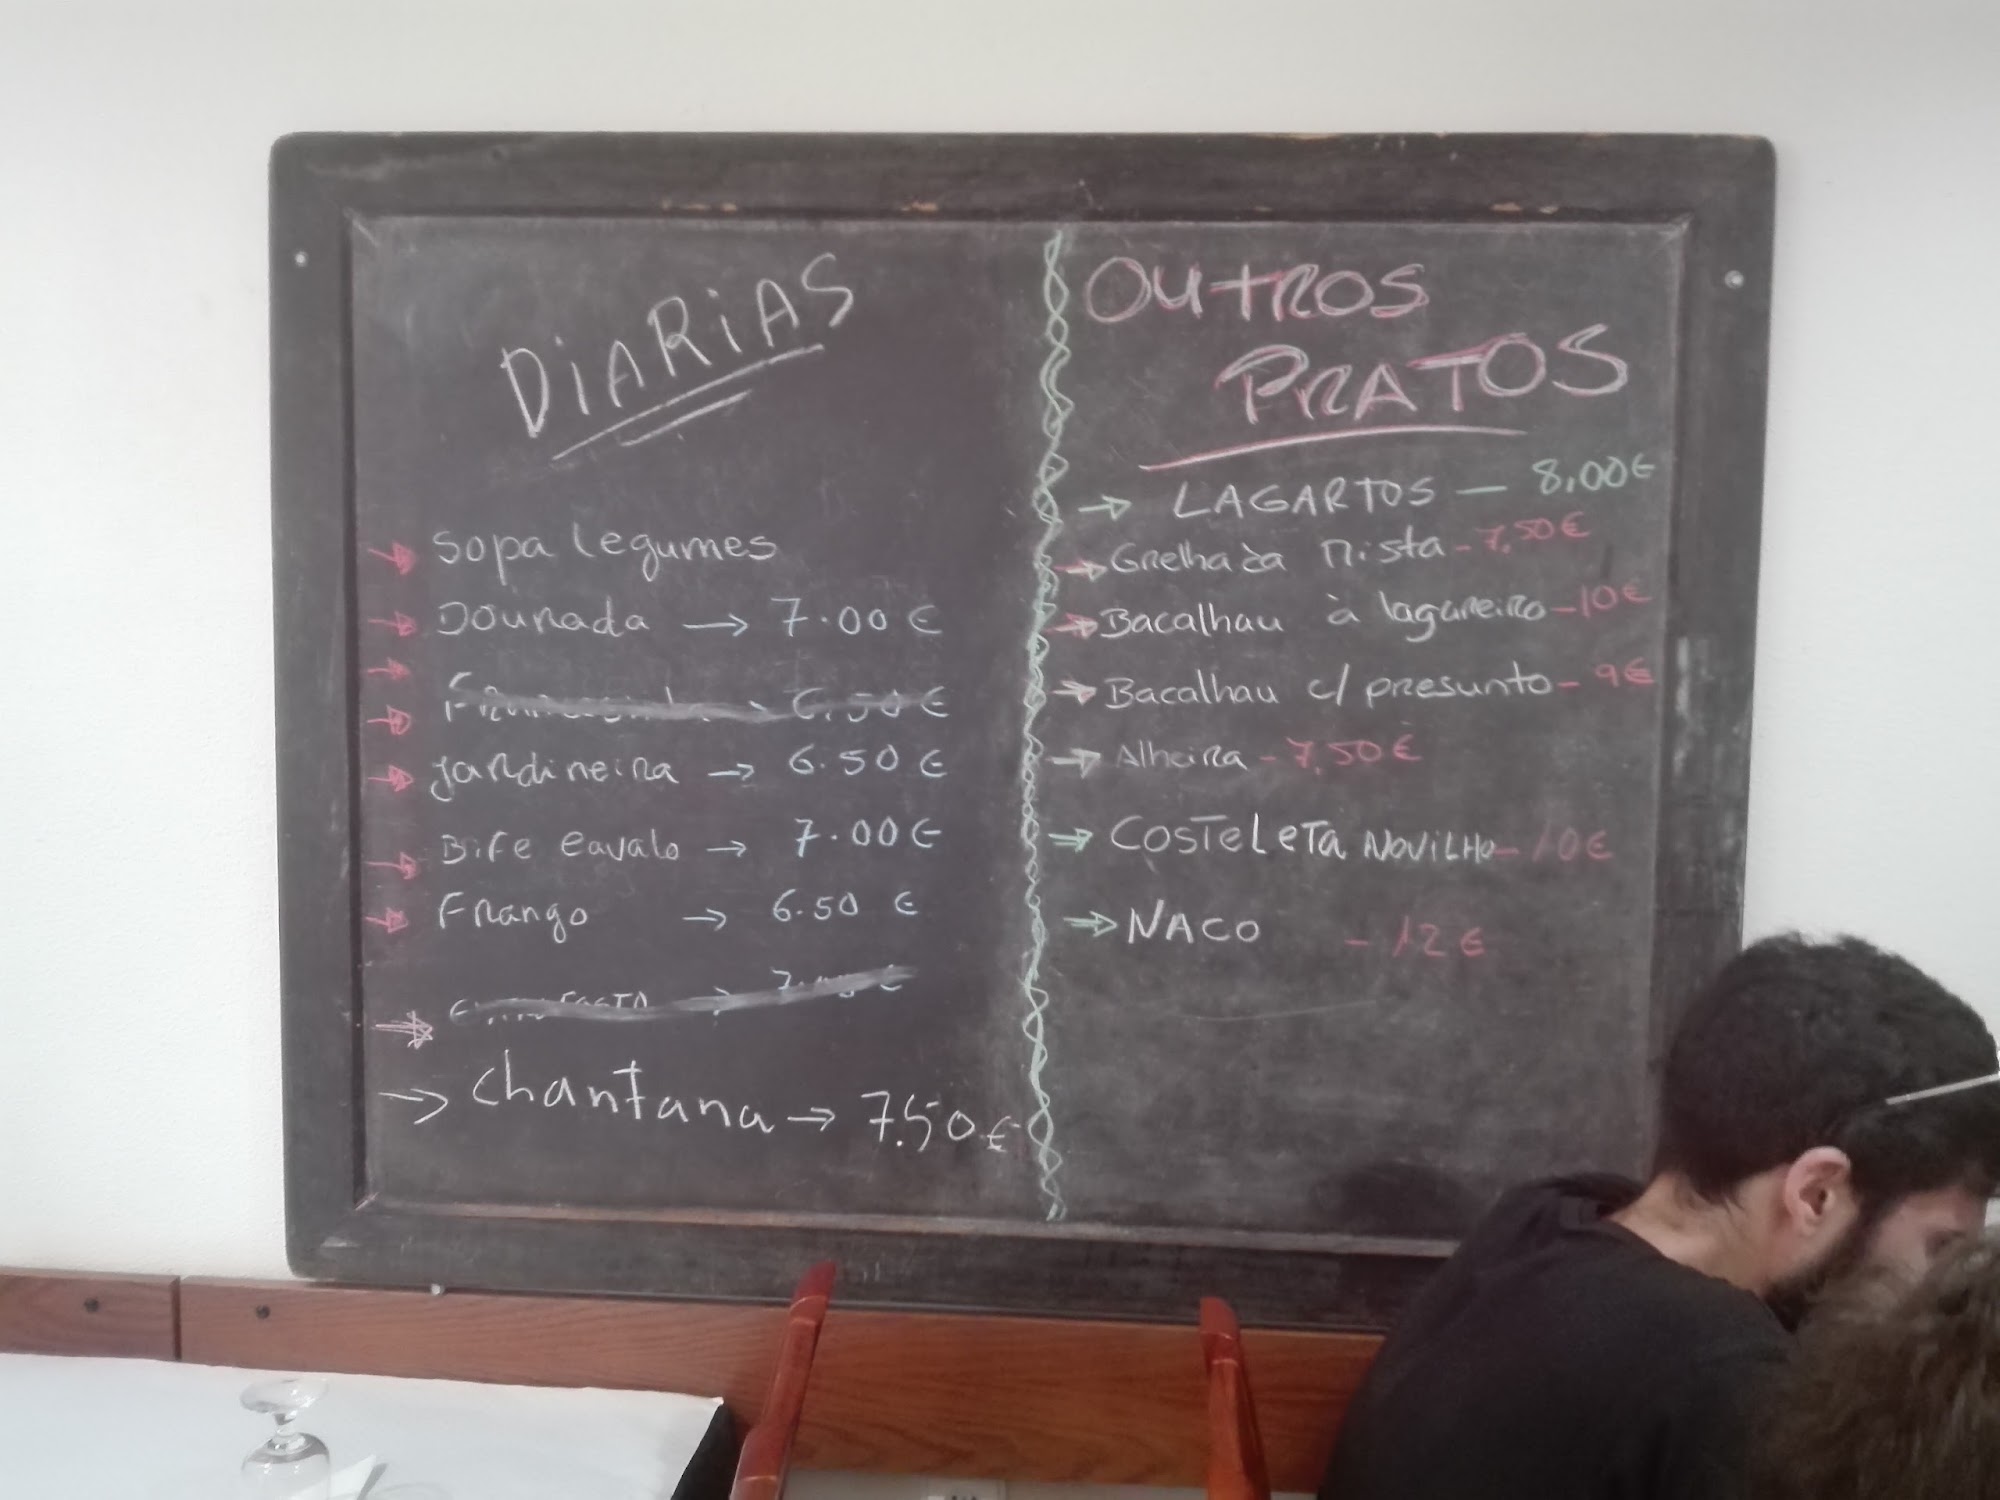 DiARiAS
Sopa legumes
Dourada → 7.00 €
6.50 €
Jardineira → 6.50 €
Bife cavalo → 7.00 €
Frango → 6.50 €
Chantana → 7.50 €
OUTROS
PRATOS
→ LAGARTOS — 8,00 €
Grelhada Mista - 7,50 €
Bacalhau à lagareiro - 10 €
Bacalhau c/ presunto - 9 €
Alheira - 7,50 €
COSTELETA NOVILHO - 10 €
NACO - 12 €